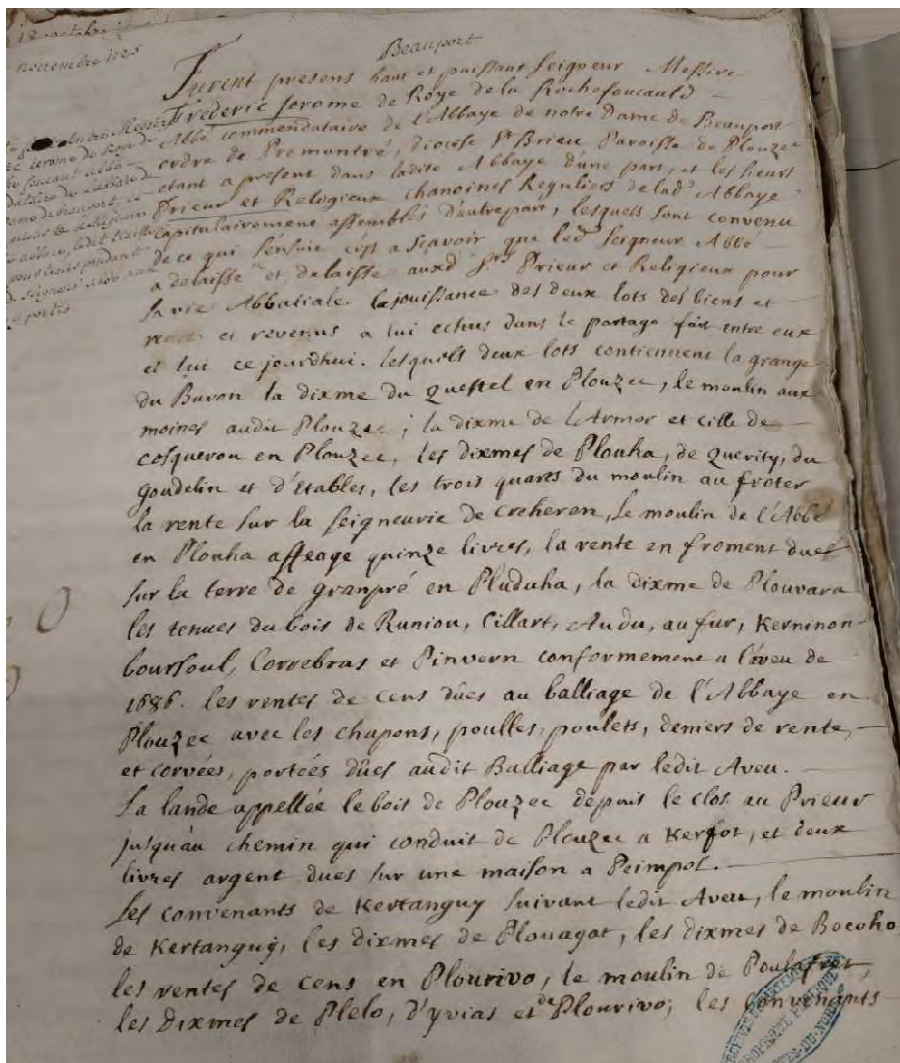 18 octobre
novembre 1725
Beauport
Furent presens haut et puissant seigneur Messire
Frederic Jerome de Roye de la Rochefoucauld
Abbé commendataire de l'Abbaye de notre Dame de Beauport
ordre de Premontré, diocese St Brieu Paroisse de Plouzec
etant a present dans ladite Abbaye d'une part, et les sieurs
Prieur et Religieux chanoines Reguliers de lad. Abbaye
capitulairement assemblés d'autre part, lesquels sont convenu
de ce qui s'ensuit c'est a sçavoir que led. seigneur Abbé
a delaissé et delaisse auxd. Srs Prieur et Religieux pour
sa vie Abbatiale la jouissance des deux lots des biens et
rente et revenus a lui echus dans le partage fait entre eux
et lui ce jourdhui. lesquels deux lots contiennent la grange
du Buron la dixme du Questel en Plouzec, le moulin aux
moines audit Plouzec ; la dixme de l'Armor et cille de
cosquerou en Plouzec, les dixmes de Plouha, de querity, du
goudelin et d'étables, les trois quarts du moulin au froter
la rente sur la seigneurie de creheren, le moulin de l'Abbé
en Plouha affeage quinze livres, la rente en froment dues
sur la terre de granpré en Pluduha, la dixme de Plouvara
les tenues du bois de Runiou, Cillart, Audu, aufur, Kerninon
boursoul, Correbras et Pinvern conformement a l'aveu de
1686. les rentes de cens dûes au balliage de l'Abbaye en
Plouzec avec les chapons, poulles, poulets, deniers de rente,
et corvées, portées dûes audit Balliage par ledit Aveu.
La lande appellée le bois de Plouzec depuis le clos au Prieur
jusqu'au chemin qui conduit de Plouzec a Kerfot, et deux
livres argent dues sur une maison a Peimpol.
Les convenants de Kertanguy suivant ledit Aveu, le moulin
de Kertanguy, les dixmes de Plouagat, les dixmes de Bocoho
les rentes de cens en Plourivo, le moulin de Poulafret,
les Dixmes de Plelo, d'yvias et de Plourivo; les convenants